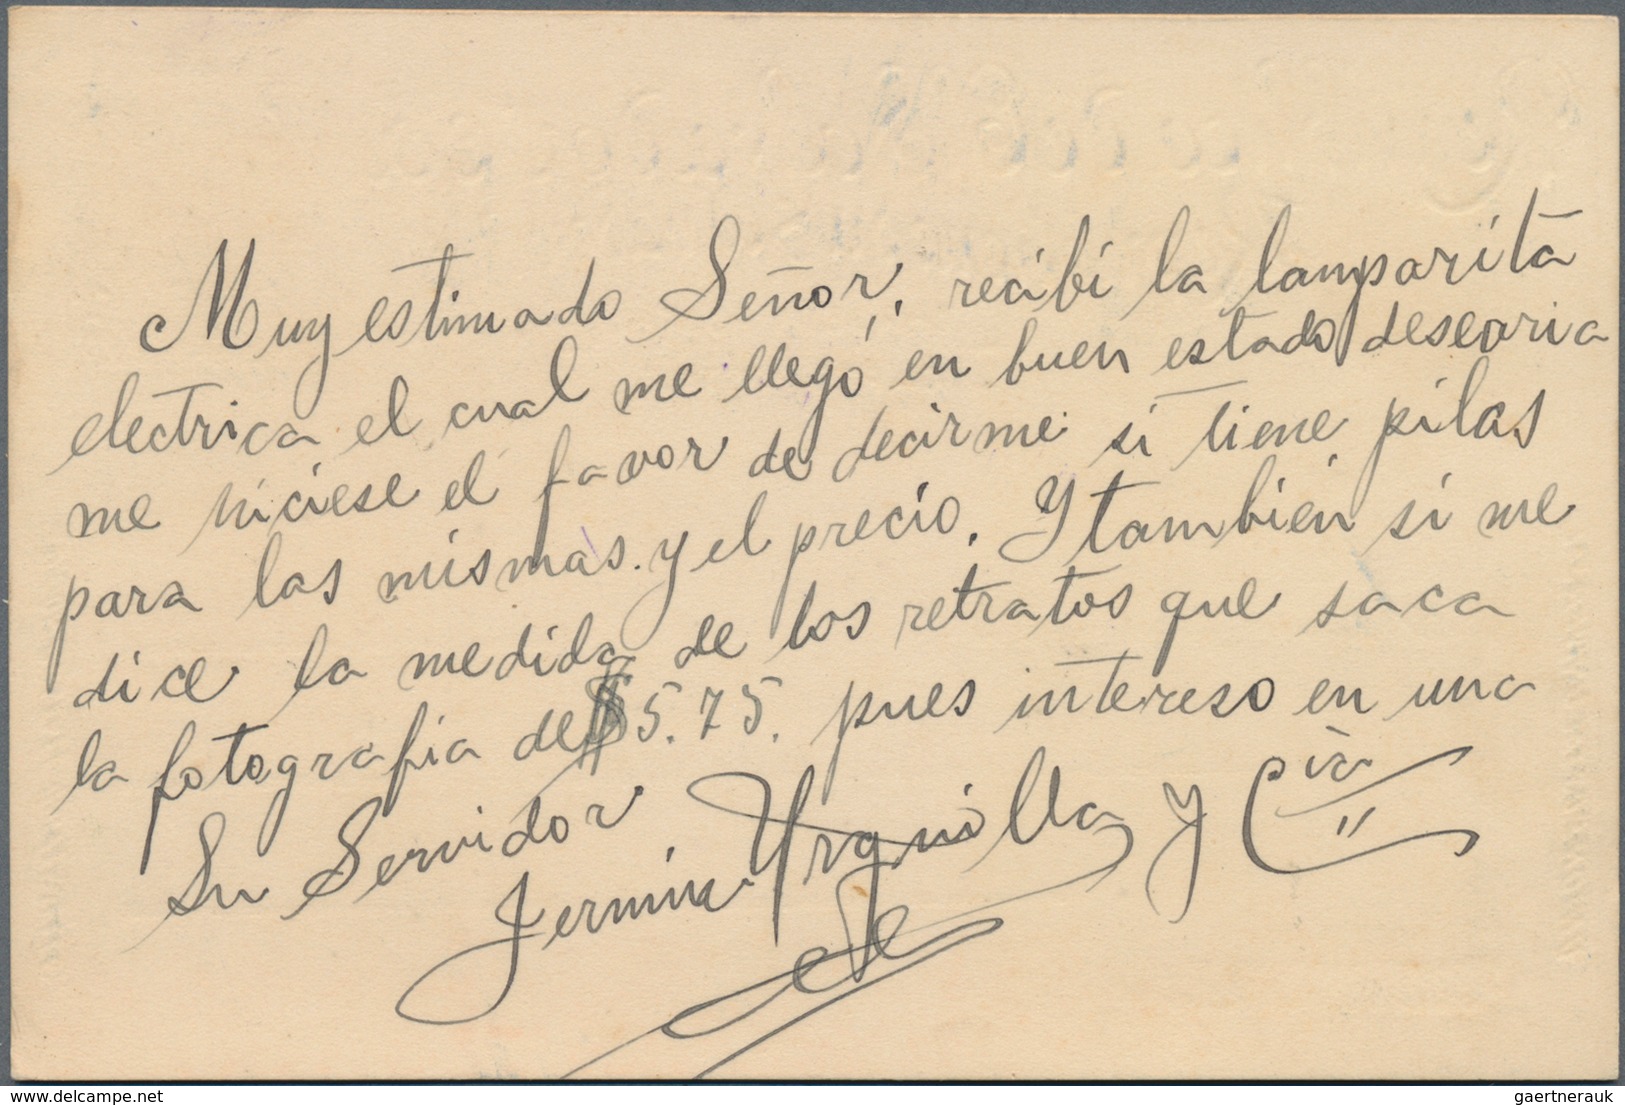 Muy estimado Señor, recibí la lamparita
electrica el cual me llegó en buen estado desearia
me hiciese el favor de decirme si tiene pilas
para las mismas. y el precio. Y tambien si me
dice la medida de los retratos que saca
la fotografia de $5.75. pues intereso en una
Su Servidor
Fermin Urquilla y Cía
delcampe.net
gaertnerauk